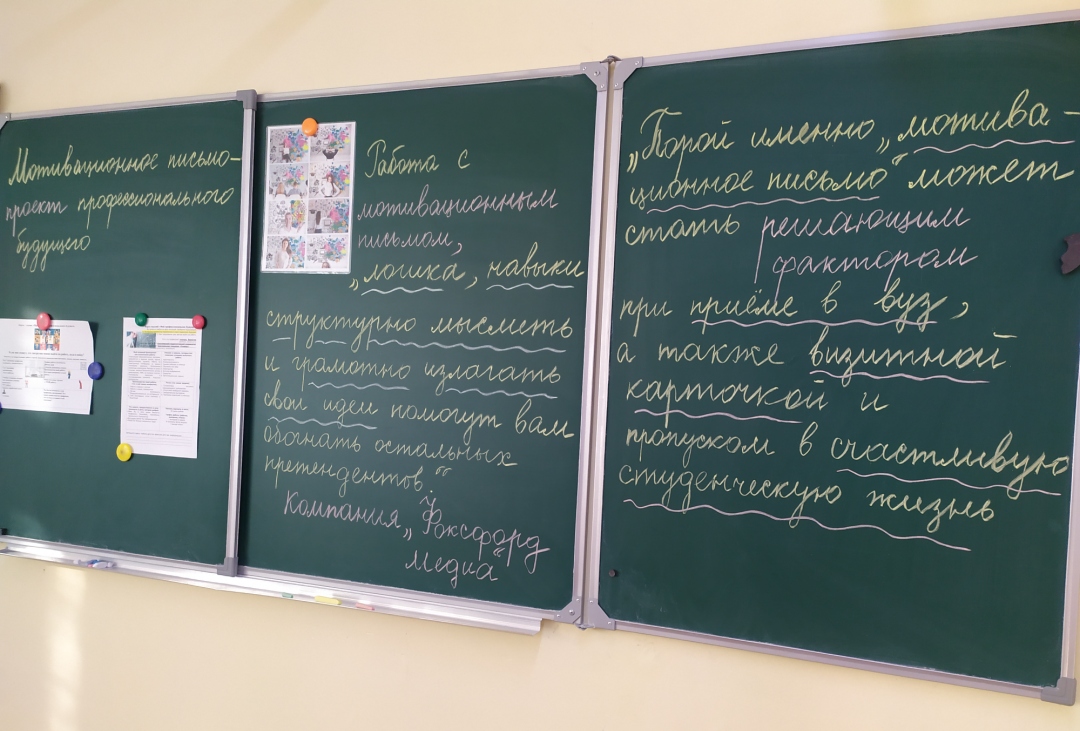 Мотивационное письмо-
проект профессионального
будущего
Работа с
мотивационным
письмом,
„логика, навыки
структурно мыслить
и грамотно излагать
свои идеи помогут вам
обогнать остальных
претендентов“.
Компания „Фоксфорд
Медиа“
„Порой именно „мотива-
ционное письмо“ может
стать решающим
фактором
при приёме в вуз,
а также визитной
карточкой и
пропуском в счастливую
студенческую жизнь